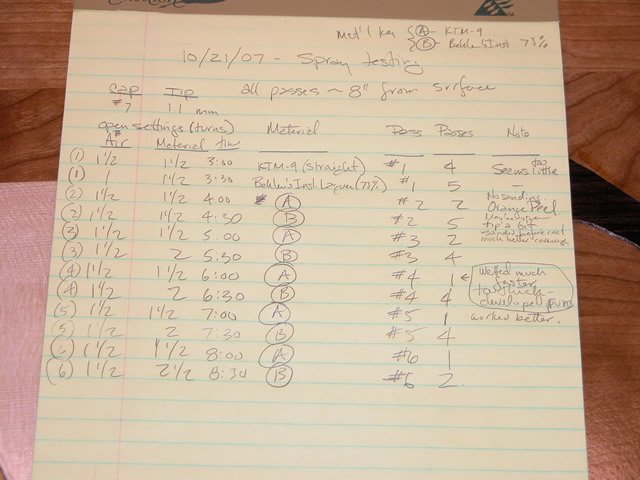 Mat'l key {Ⓐ - KTM-9
{Ⓑ - Behlen's Inst 73%
10/21/07 - Spray testing
Cap Tip all passes ~ 8" from surface
#7 1.1 mm
open settings (turns) Material Pass Passes Note
Air Material time
① 1 1/2 1 1/2 3:00 KTM-9 (straight) #1 4 Seems little
① 1 1 1/2 3:30 Behlen's Inst. Lacquer (73%) #1 5 —
② 1 1/2 1 1/2 4:00 Ⓐ #2 2 No sanding Orange Peel
② 1 1/2 1 1/2 4:30 Ⓑ #2 5
③ 1 1/2 1 1/2 5:00 Ⓐ #3 2 much better coverage
③ 1 1/2 2 5:30 Ⓑ #3 4
④ 1 1/2 1 1/2 6:00 Ⓐ #4 1 ← Wetted much faster
④ 1 1/2 2 6:30 Ⓑ #4 4 too thick - developed runs
⑤ 1 1/2 1 1/2 7:00 Ⓐ #5 1 worked better.
⑤ 1 1/2 2 7:30 Ⓑ #5 4
⑥ 1 1/2 1 1/2 8:00 Ⓐ #6 1
⑥ 1 1/2 2 1/2 8:30 Ⓑ #6 2